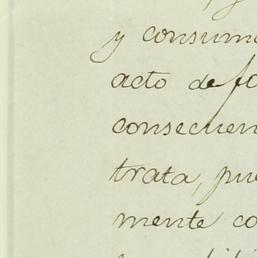 y consum
acto de fo
consecuen
trata, pue
mente co